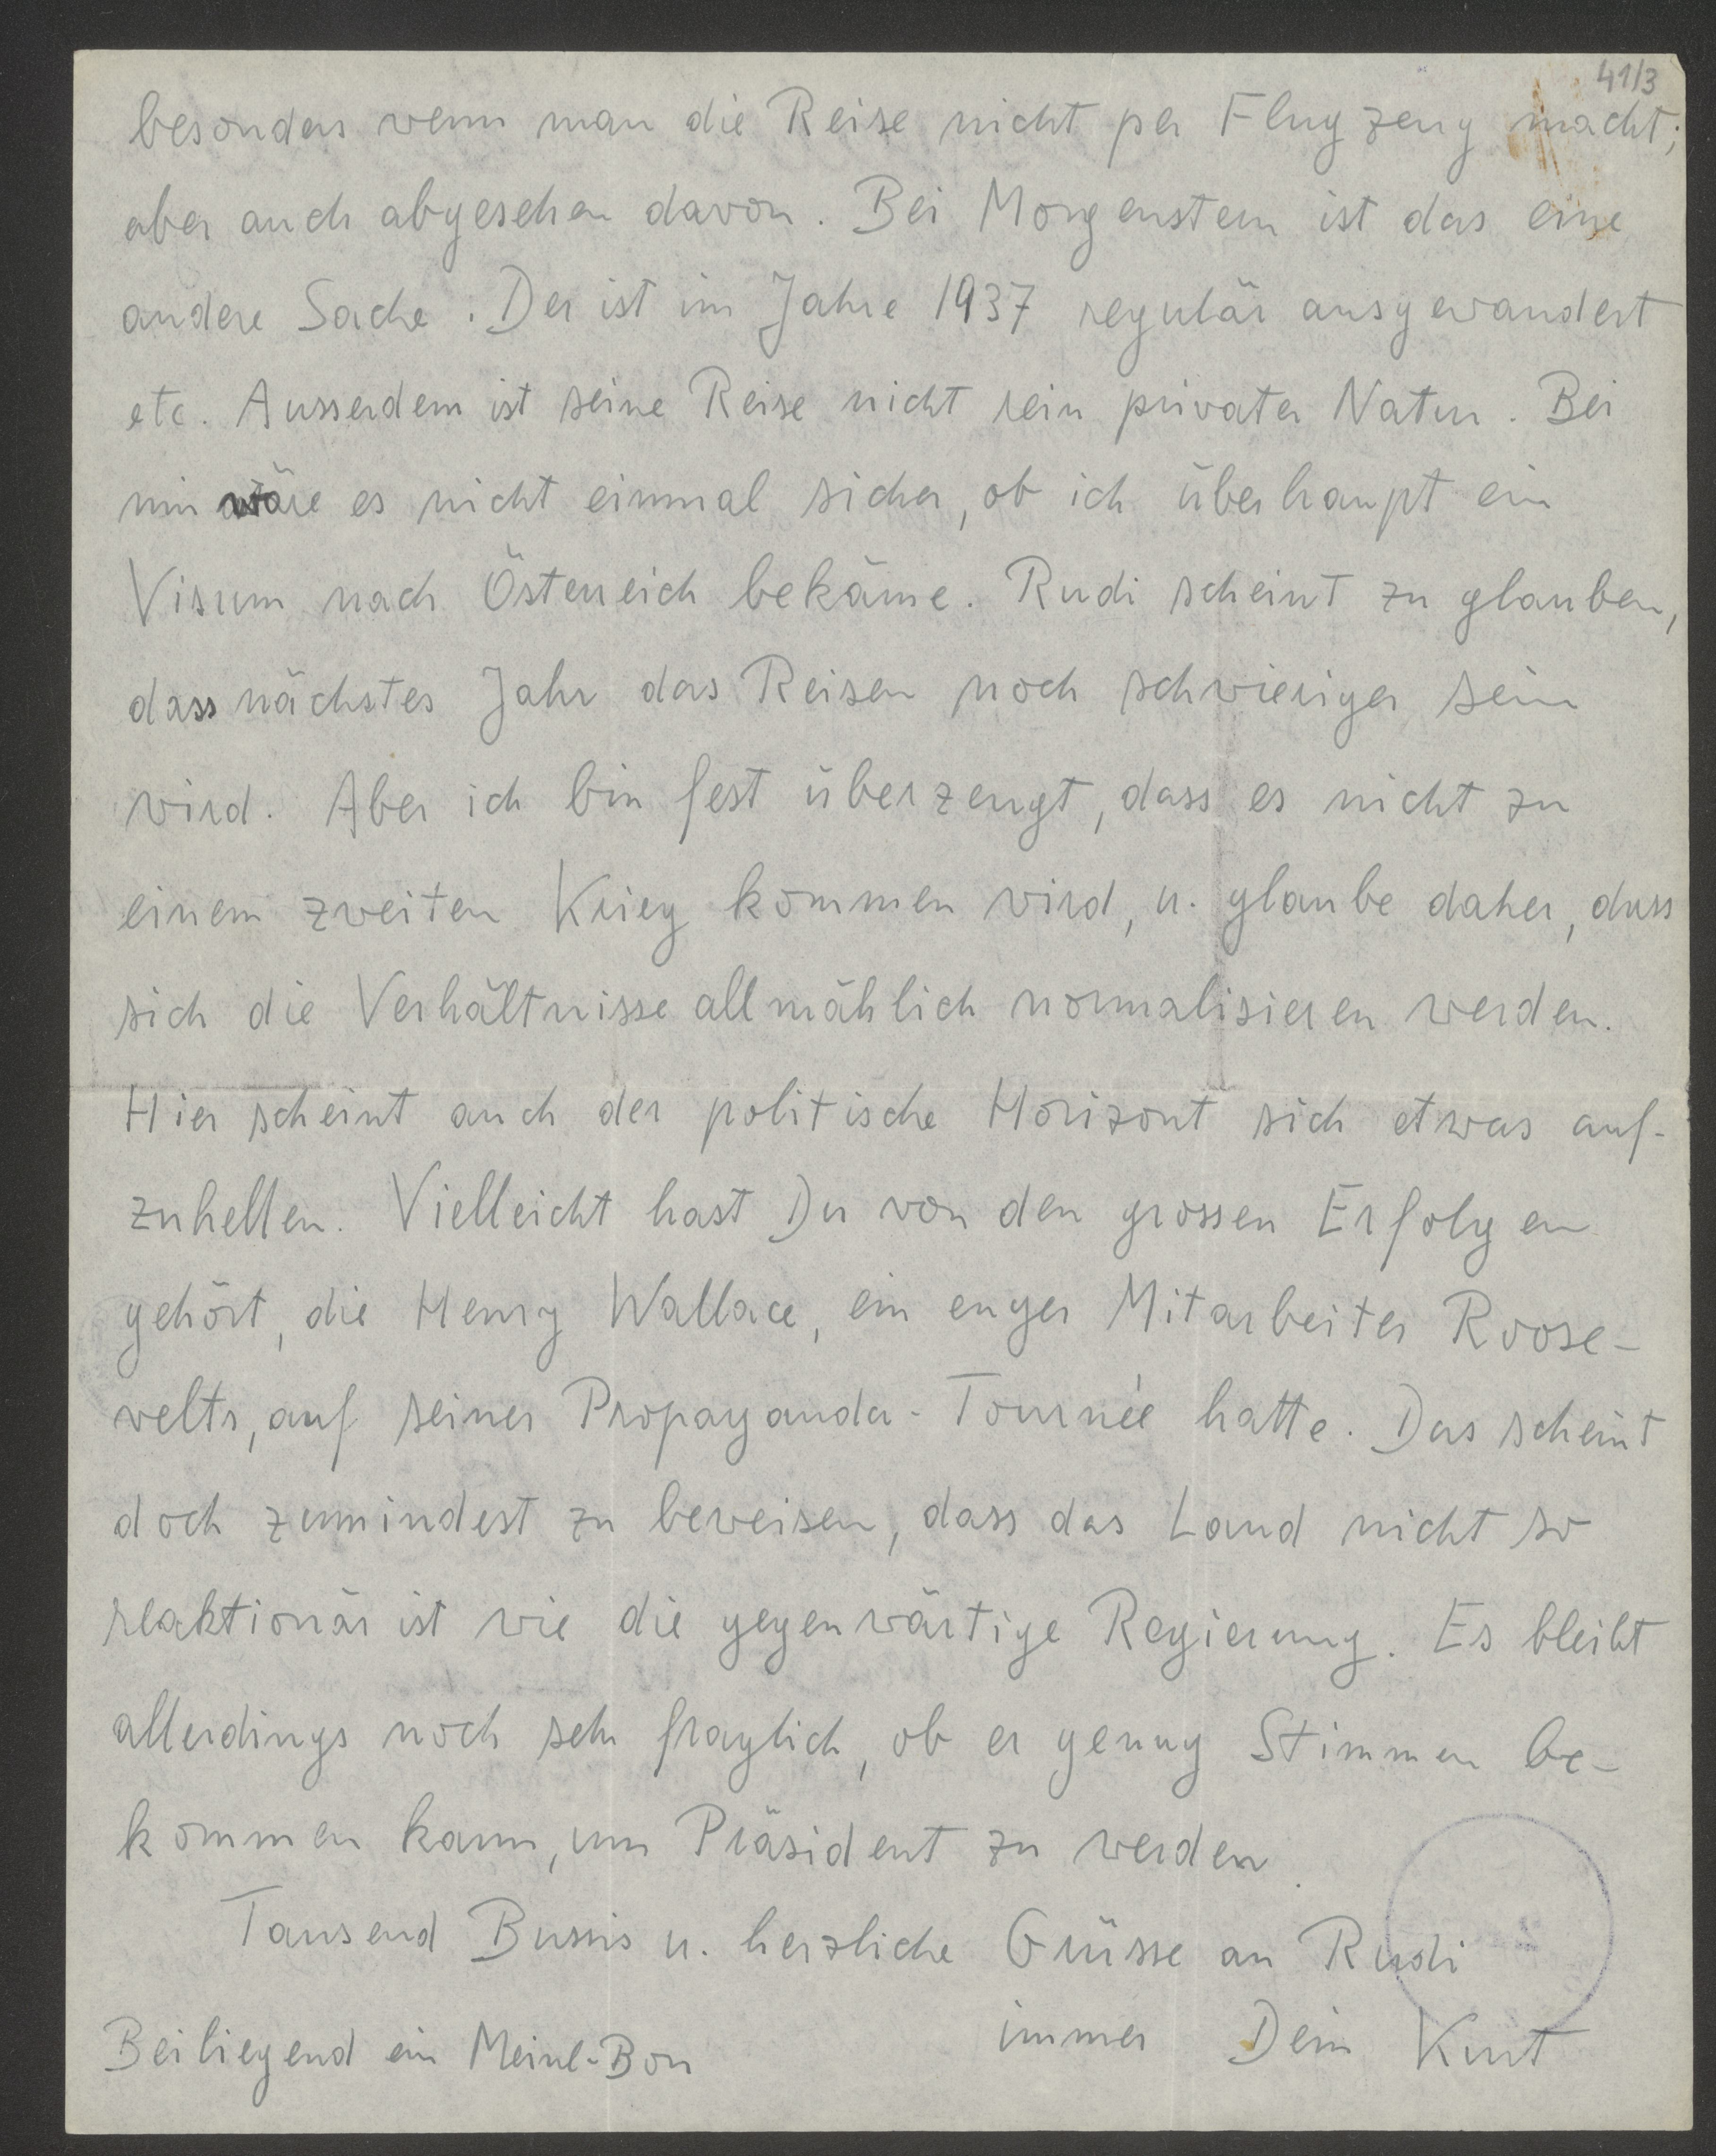 41/3
besonders wenn man die Reise nicht per Flugzeug macht;
aber auch abgesehen davon. Bei Morgenstern ist das eine
andere Sache. Der ist im Jahre 1937 regulär ausgewandert
etc. Ausserdem ist seine Reise nicht rein privater Natur. Bei
mir wäre es nicht einmal sicher, ob ich überhaupt ein
Visum nach Österreich bekäme. Rudi scheint zu glauben,
dass nächstes Jahr das Reisen noch schwieriger sein
wird. Aber ich bin fest überzeugt, dass es nicht zu
einem zweiten Krieg kommen wird, u. glaube daher, dass
sich die Verhältnisse allmählich normalisieren werden.
Hier scheint auch der politische Horizont sich etwas auf-
zuhellen. Vielleicht hast Du von den grossen Erfolgen
gehört, die Henry Wallace, ein enger Mitarbeiter Roose-
velts, auf seiner Propaganda-Tournée hatte. Das scheint
doch zumindest zu beweisen, dass das Land nicht so
reaktionär ist wie die gegenwärtige Regierung. Es bleibt
allerdings noch sehr fraglich, ob er genug Stimmen be-
kommen kann, um Präsident zu werden.
Tausend Bussis u. herzliche Grüsse an Rudi
immer Dein Kurt
Beiliegend ein Meinl-Bon